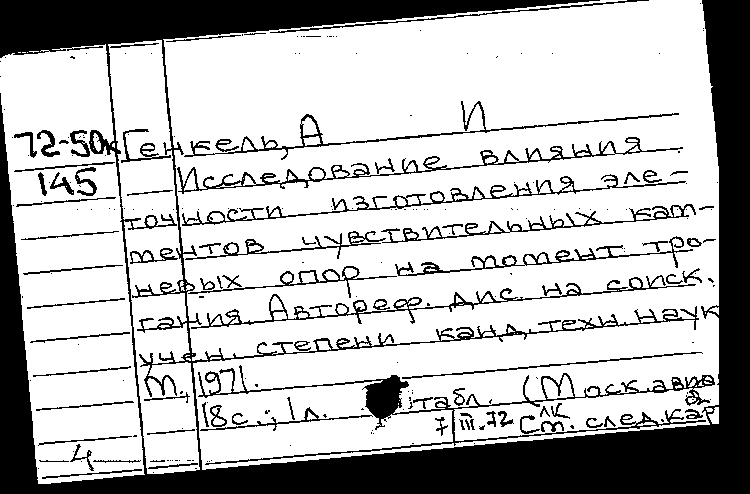 72-50к Генкель, А И
145 Исследование влияния
точности изготовления эле-
ментов чувствительных кам-
невых опор на момент тро-
гания. Автореф. дис. на соиск.
учен. степени канд. техн. наук
М., 1971.
18 с.; 1 л. табл. (Моск. авиа
7/III.72 См. след. кар
4